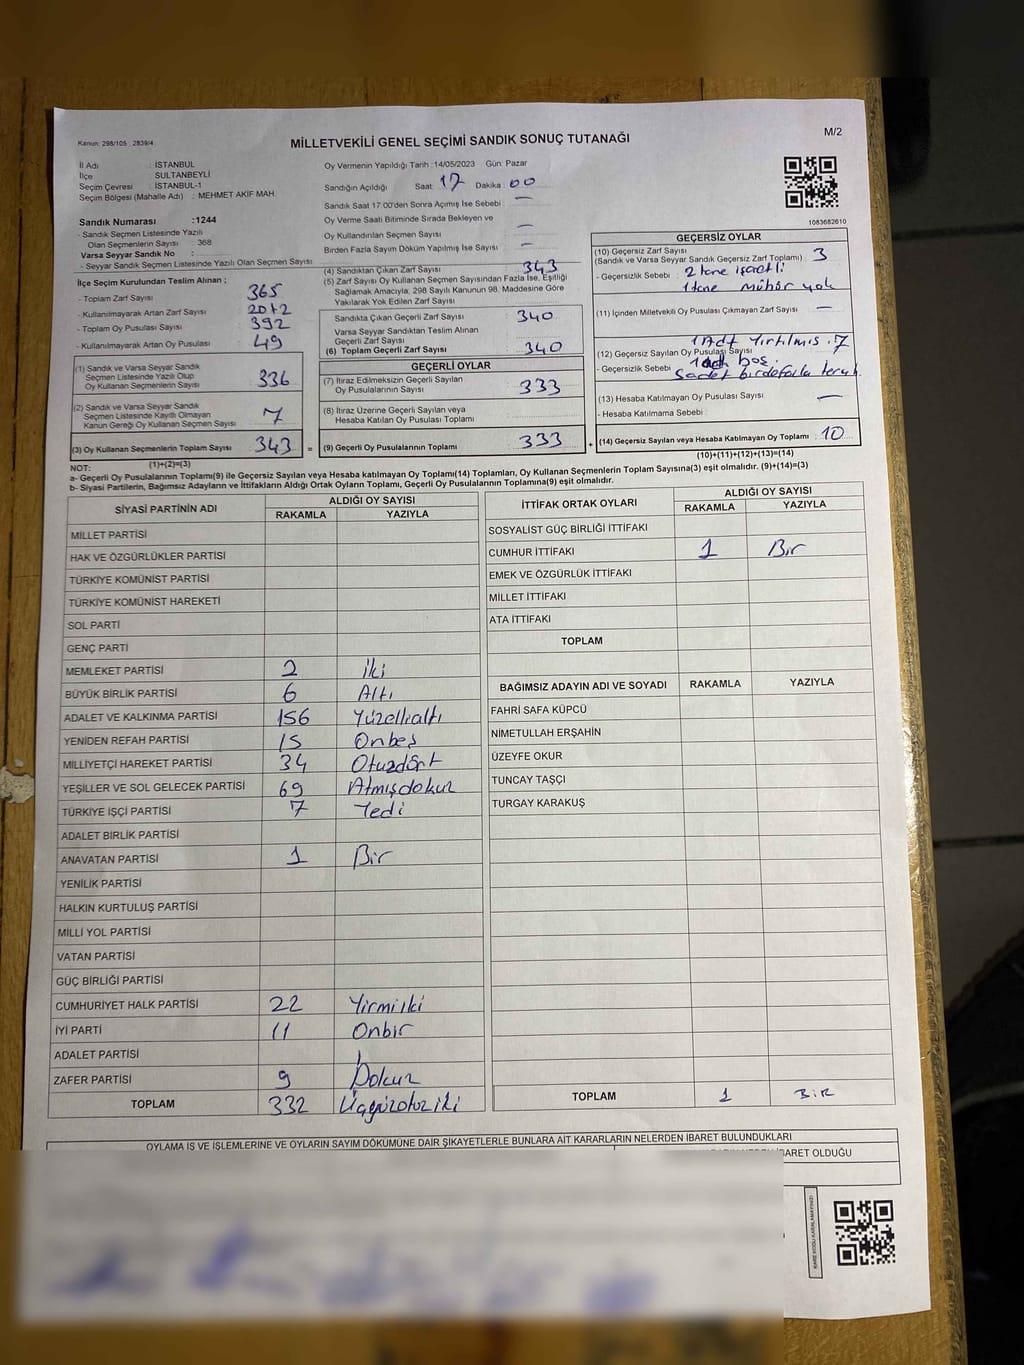 Kanun: 298/105 2839/4
MİLLETVEKİLİ GENEL SEÇİMİ SANDIK SONUÇ TUTANAĞI
M/2
İl Adı : İSTANBUL
İlçe : SULTANBEYLİ
Seçim Çevresi : İSTANBUL-1
Seçim Bölgesi (Mahalle Adı) : MEHMET AKİF MAH.
Sandık Numarası : 1244
- Sandık Seçmen Listesinde Yazılı
Olan Seçmenlerin Sayısı : 368
Varsa Seyyar Sandık No :
- Seyyar Sandık Seçmen Listesinde Yazılı Olan Seçmen Sayısı :
İlçe Seçim Kurulundan Teslim Alınan ;
- Toplam Zarf Sayısı 365
- Kullanılmayarak Artan Zarf Sayısı
- Toplam Oy Pusulası Sayısı 392
- Kullanılmayarak Artan Oy Pusulası 49
(1) Sandık ve Varsa Seyyar Sandık
Seçmen Listesinde Yazılı Olup
Oy Kullanan Seçmenlerin Sayısı 336
(2) Sandık ve Varsa Seyyar Sandık
Seçmen Listesinde Kayıtlı Olmayan
Kanun Gereği Oy Kullanan Seçmen Sayısı 7
(3) Oy Kullanan Seçmenlerin Toplam Sayısı 343 =
(1)+(2)=(3)
Oy Vermenin Yapıldığı Tarih : 14/05/2023 Gün: Pazar
Sandığın Açıldığı Saat : 17 Dakika : 00
Sandık Saat 17:00'den Sonra Açımış İse Sebebi : —
Oy Verme Saati Bitiminde Sırada Bekleyen ve
Oy Kullandırılan Seçmen Sayısı : —
Birden Fazla Sayım Döküm Yapılmış İse Sayısı : —
(4) Sandıktan Çıkan Zarf Sayısı 343
(5) Zarf Sayısı Oy Kullanan Seçmen Sayısından Fazla İse, Eşitliği
Sağlamak Amacıyla, 298 Sayılı Kanunun 98. Maddesine Göre
Yakılarak Yok Edilen Zarf Sayısı
Sandıkta Çıkan Geçerli Zarf Sayısı : 340
Varsa Seyyar Sandıktan Teslim Alınan
Geçerli Zarf Sayısı
(6) Toplam Geçerli Zarf Sayısı : 340
GEÇERLİ OYLAR
(7) İtiraz Edilmeksizin Geçerli Sayılan
Oy Pusulalarının Sayısı : 333
(8) İtiraz Üzerine Geçerli Sayılan veya
Hesaba Katılan Oy Pusulası Toplamı
(9) Geçerli Oy Pusulalarının Toplamı : 333 +
1083682610
GEÇERSİZ OYLAR
(10) Geçersiz Zarf Sayısı
(Sandık ve Varsa Seyyar Sandık Geçersiz Zarf Toplamı) : 3
- Geçersizlik Sebebi : 2 tane işaretli
1 tane mühür yok
(11) İçinden Milletvekili Oy Pusulası Çıkmayan Zarf Sayısı : —
1 Adt Yırtılmış
(12) Geçersiz Sayılan Oy Pusulası Sayısı : 7
- Geçersizlik Sebebi : boş
(13) Hesaba Katılmayan Oy Pusulası Sayısı : —
- Hesaba Katılmama Sebebi :
(14) Geçersiz Sayılan veya Hesaba Katılmayan Oy Toplamı : 10
(10)+(11)+(12)+(13)=(14)
NOT:
a- Geçerli Oy Pusulalarının Toplamı(9) ile Geçersiz Sayılan veya Hesaba katılmayan Oy Toplamı(14) Toplamları, Oy Kullanan Seçmenlerin Toplam Sayısına(3) eşit olmalıdır. (9)+(14)=(3)
b- Siyasi Partilerin, Bağımsız Adayların ve İttifakların Aldığı Ortak Oyların Toplamı, Geçerli Oy Pusulalarının Toplamına(9) eşit olmalıdır.
SİYASİ PARTİNİN ADI ALDIĞI OY SAYISI
RAKAMLA YAZIYLA
MİLLET PARTİSİ
HAK VE ÖZGÜRLÜKLER PARTİSİ
TÜRKİYE KOMÜNİST PARTİSİ
TÜRKİYE KOMÜNİST HAREKETİ
SOL PARTİ
GENÇ PARTİ
MEMLEKET PARTİSİ 2 İki
BÜYÜK BİRLİK PARTİSİ 6 Altı
ADALET VE KALKINMA PARTİSİ 156 Yüzellialtı
YENİDEN REFAH PARTİSİ 15 Onbeş
MİLLİYETÇİ HAREKET PARTİSİ 34 Otuzdört
YEŞİLLER VE SOL GELECEK PARTİSİ 69 Atmışdokuz
TÜRKİYE İŞÇİ PARTİSİ 7 Yedi
ADALET BİRLİK PARTİSİ
ANAVATAN PARTİSİ 1 Bir
YENİLİK PARTİSİ
HALKIN KURTULUŞ PARTİSİ
MİLLİ YOL PARTİSİ
VATAN PARTİSİ
GÜÇ BİRLİĞİ PARTİSİ
CUMHURİYET HALK PARTİSİ 22 Yirmiiki
İYİ PARTİ 11 Onbir
ADALET PARTİSİ
ZAFER PARTİSİ 9 Dokuz
TOPLAM 332 Üçyüzotuziki
İTTİFAK ORTAK OYLARI ALDIĞI OY SAYISI
RAKAMLA YAZIYLA
SOSYALİST GÜÇ BİRLİĞİ İTTİFAKI
CUMHUR İTTİFAKI 1 Bir
EMEK VE ÖZGÜRLÜK İTTİFAKI
MİLLET İTTİFAKI
ATA İTTİFAKI
TOPLAM
BAĞIMSIZ ADAYIN ADI VE SOYADI RAKAMLA YAZIYLA
FAHRİ SAFA KÜPCÜ
NİMETULLAH ERŞAHİN
ÜZEYFE OKUR
TUNCAY TAŞÇI
TURGAY KARAKUŞ
TOPLAM 1 BİR
OYLAMA İŞ VE İŞLEMLERİNE VE OYLARIN SAYIM DÖKÜMÜNE DAİR ŞİKAYETLERLE BUNLARA AİT KARARLARIN NELERDEN İBARET BULUNDUKLARI
İBARET OLDUĞU
KARE KODU KARALAMAYINIZ!